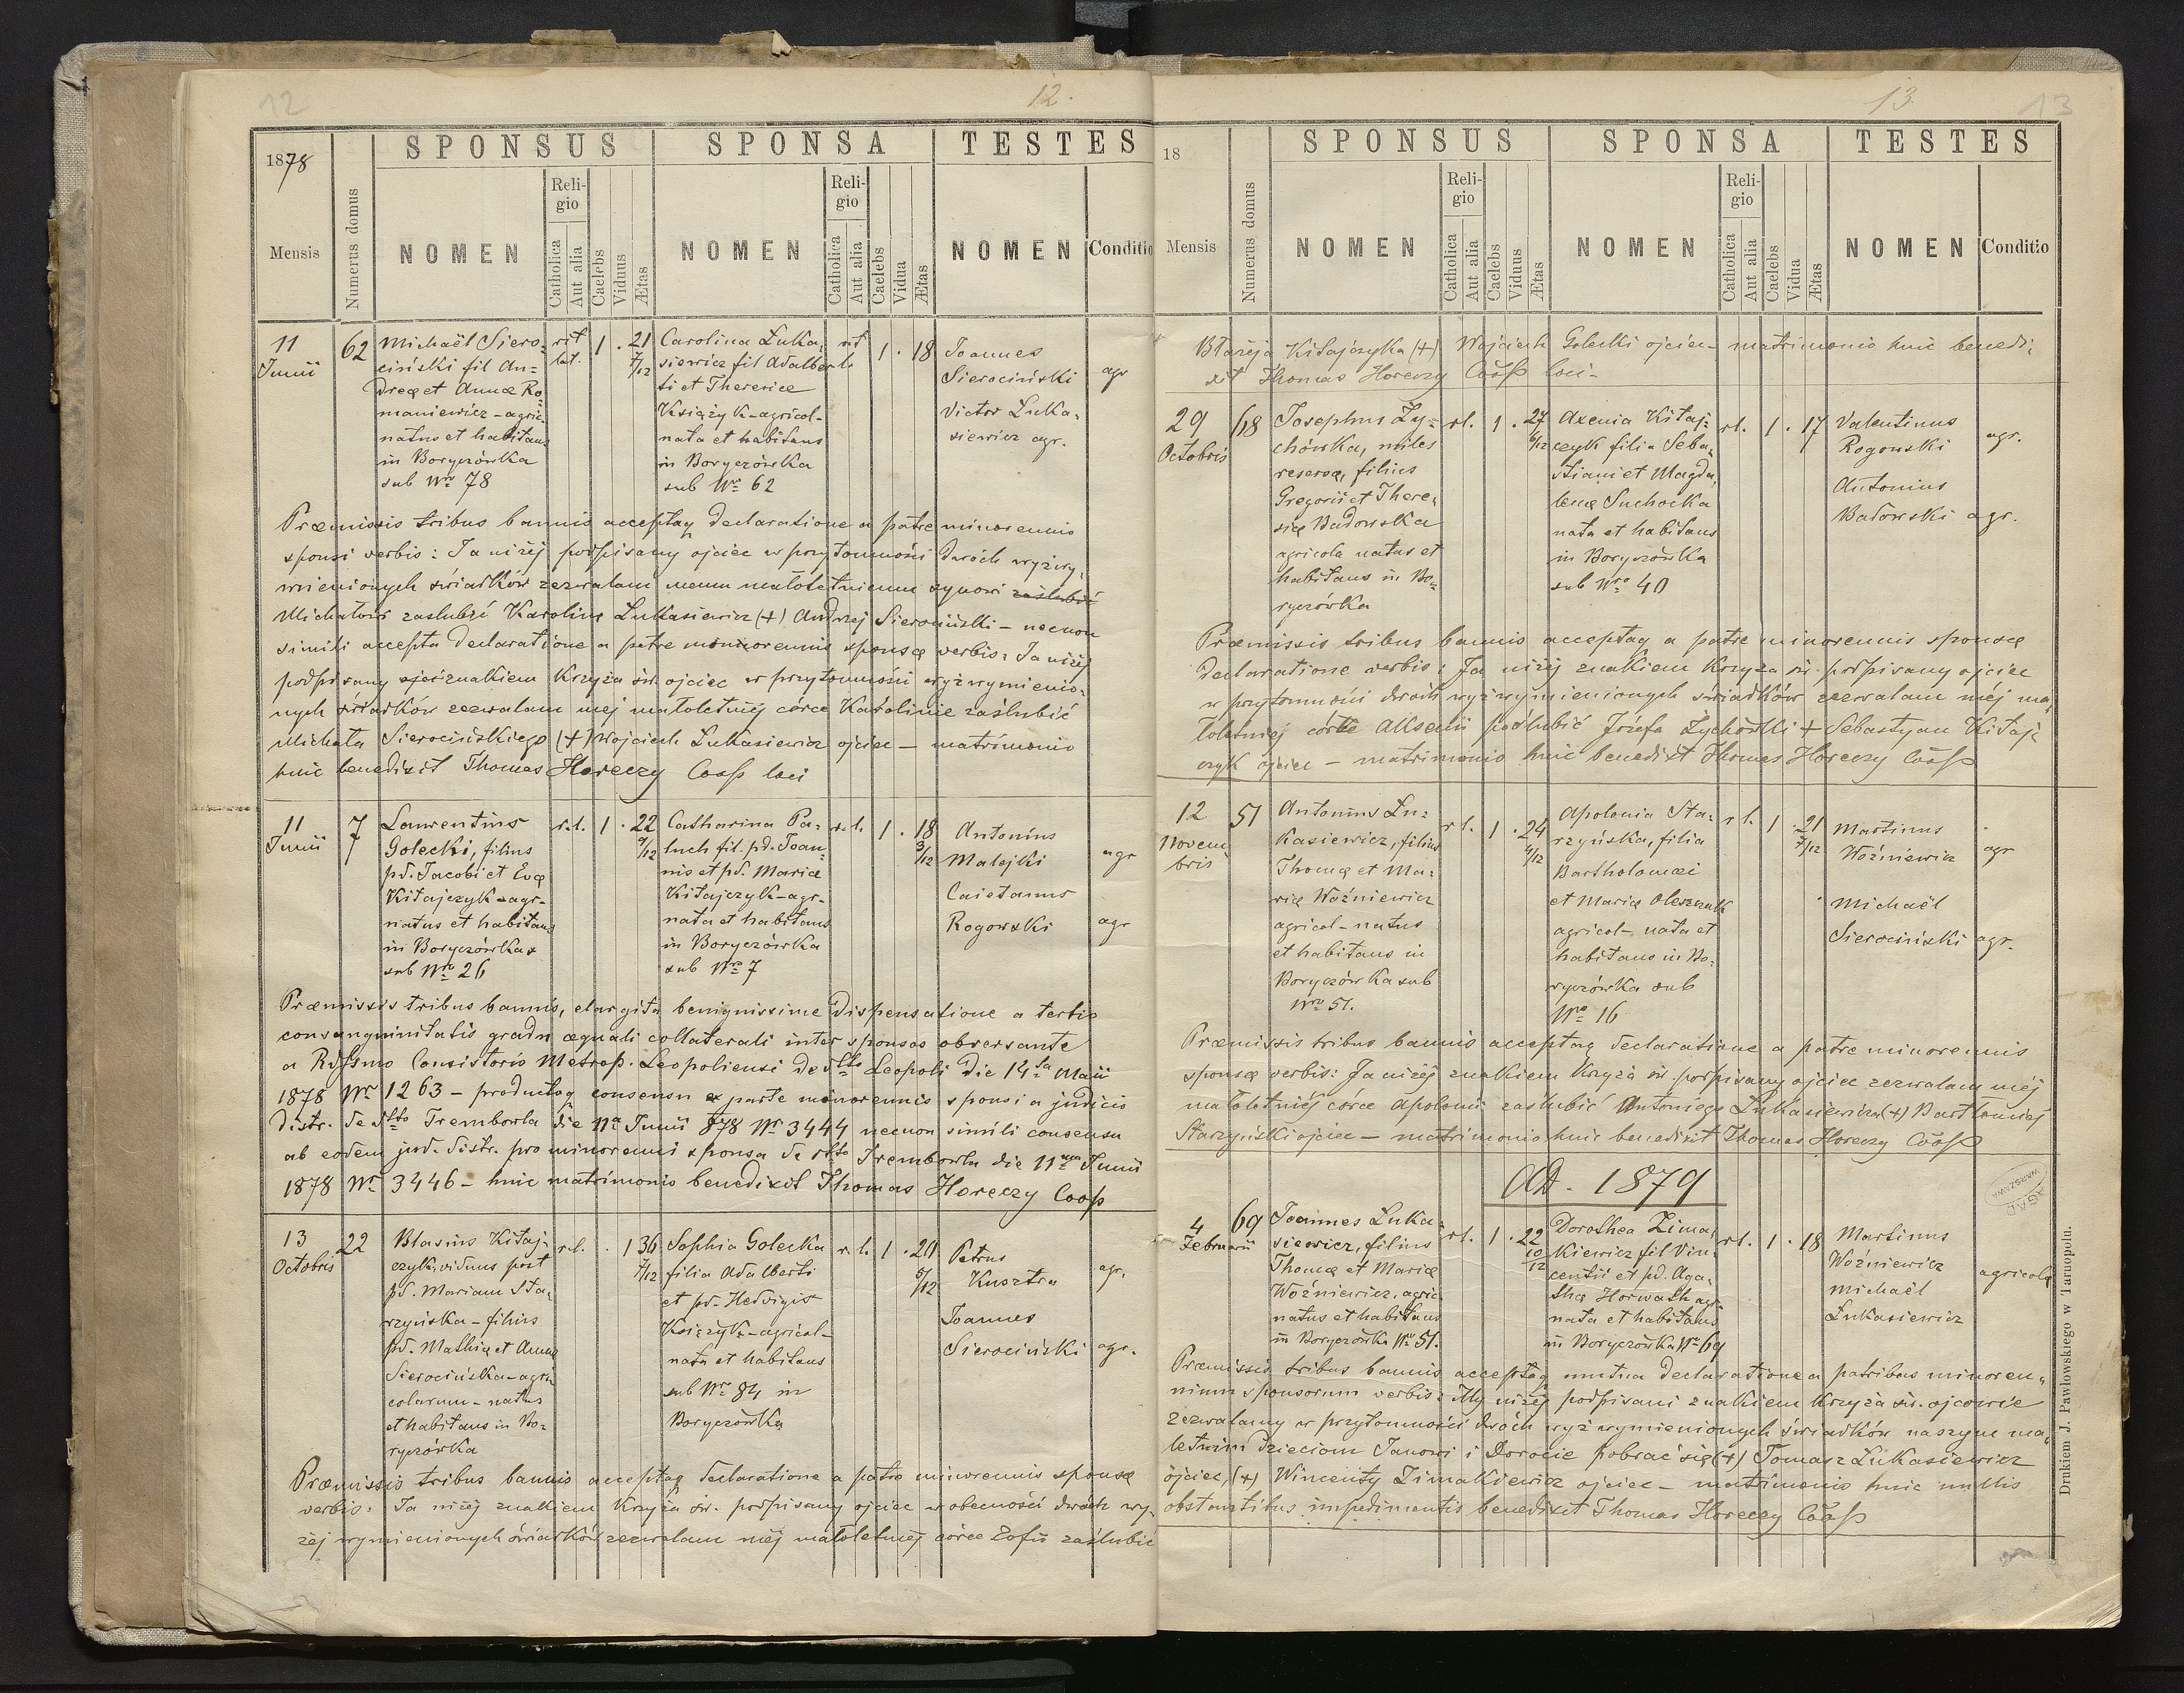 12
12.
1878
SPONSUS
SPONSA
TESTES
Mensis
Numerus domus
NOMEN
Religio
Catholica
Aut alia
Caelebs
Viduus
Ætas
NOMEN
Religio
Catholica
Aut alia
Caelebs
Vidua
Ætas
NOMEN
Conditio
11 Junii
62
Michaël Siero=
ciński fil An=
dreæ et Annæ Ro=
maniewicz - agric.
natus et habitans
in Boryczówka
sub Nro 78
rit lat.
1 . 21 7/12
Carolina Łuka,
siewicz fil Adalber
ti et Theresiæ
Księżyk - agricol -
nata et habitans
in Boryczówka
sub Nro 62
1 . 18
Joannes
Sierociński agr
Victor Łuka,
siewicz agr.
Præmissis tribus bannis acceptaq declaratione a patre minorennis
sponsi verbis: Ja niżej podpisany ojciec w przytomności dwóch wyżwy,
mienionych świadków zezwalam memu małoletniemu synowi zaślubić
Michałowi zaślubić Karolinę Łukasiewicz (+) Andrzej Sierociński - necnon
simili accepta declaratione a patre minorennis sponsæ verbis: Ja niżej
podpisany znakiem Krzyża św. ojciec w przytomności wyżwymienio,
nych świadków zezwalam mej małoletniej córce Karolinie zaślubić
Michała Sierocińskiego (+) Wojciech Łukasiewicz ojciec - matrimonio
huic benedixit Thomas Horeczy Coop loci
11 Junii
7
Laurentius
Gołecki, filius
pd. Jacobi et Evæ
Kitajczyk - agr -
natus et habitans
in Boryczówka
sub Nro 26
r.l. 1 . 22 9/12
Catharina Pa=
luch fil. pd. Joan=
nis et pd. Mariæ
Kitajczyk - agr -
nata et habitans
in Boryczówka
sub Nro 7
r.l. 1 . 18 3/12
Antonius
Malejki agr
Caietanus
Rogowski agr
Præmissis tribus bannis, elargita benignissime dispensatione a tertio
consanguinitatis gradu æquali collaterali inter sponsos obversante
a Rdssmo Consistorio Metrop. Leopoliensi de dtto Leopoli die 14ta Maii
1878 Nr 1263 - productoq consensu ex parte minorennis sponsi a judicio
distr. de dtto Trembowla die 11a Junii 878 Nr 3444 necnon simili consensu
ab eodem jud. distr. pro minorenni sponsa de dtto Trembowla die 11ma Junii
1878 Nr 3446 - huic matrimonio benedixit Thomas Horeczy Coop
13 Octobris
22
Blasius Kitaj=
czyk, viduus post
pd. Mariam Sta,
rzyńska - filius
pd. Mathiæ et Annæ
Sierocińska - agri
colarum - natus
et habitans in Bo=
ryczówka
r.l. . 1 36 7/12
Sophia Gołecka
filia Adalberti
et pd. Hedvigis
Księżyk - agricol -
nata et habitans
sub Nro 84 in
Boryczówka
r.l. 1 . 20 5/12
Petrus
Kusztra agr.
Joannes
Sierociński agr.
Præmissis tribus bannis acceptaq declaratione a patre minorennis sponsæ
verbis: Ja niżej znakiem Krzyża św. podpisany ojciec w obecności dwóch wy,
żej wymienionych świadków zezwalam mej małoletniej córce Zofii zaślubić
13.
13
18
SPONSUS
SPONSA
TESTES
Mensis
Numerus domus
NOMEN
Religio
Catholica
Aut alia
Caelebs
Viduus
Ætas
NOMEN
Religio
Catholica
Aut alia
Caelebs
Vidua
Ætas
NOMEN
Conditio
Błażeja Kitajczyka (+) Wojciech Gołecki ojciec - matrimonio huic benedi,
xit Thomas Horeczy Coop loci -
29 Octobris
68
Josephus Ży=
chówka, miles
reservæ, filius
Gregorii et There,
siæ Badowska
agricola natus et
habitans in Bo=
ryczówka
r.l. 1 . 27 6/12
Axenia Kitaj=
czyk filia Seba,
stiani et Magda,
lenæ Suchocka
nata et habitans
in Boryczówka
sub Nro 40
r.l. 1 . 17
Valentinus
Rogowski agr.
Antonius
Badowski agr.
Præmissis tribus bannis acceptaq a patre minorennis sponsæ
declaratione verbis: Ja niżej znakiem Krzyża św. podpisany ojciec
w przytomności dwóch wyżwymienionych świadków zezwalam mej ma,
łoletniej córce Aksenii poślubić Józefa Żychówki + Sebastyan Kitaj=
czyk ojciec - matrimonio huic benedixt Thomas Horeczy Coop
12 Novembris
51
Antonius Łu=
kasiewicz, filius
Thomæ et Ma=
riæ Woźniewicz
agricol - natus
et habitans in
Boryczówka sub
Nro 51.
r.l. 1 . 24 4/12
Apolonia Sta=
rzyńska, filia
Bartholomæi
et Mariæ Oleszczuk
agricol - nata et
habitans in Bo=
ryczówka sub
Nro 16
r.l. 1 . 21 7/12
Martinus
Woźniewicz agr
Michaël
Sierociński agr.
Præmissis tribus bannis acceptaq declaratione a patre minorennis
sponsæ verbis: Ja niżej znakiem Krzyża św. podpisany ojciec zezwalam mej
małoletniej córce Apolonii zaślubić Antoniego Łukasiewicza (+) Bartłomiej
Starzyński ojciec - matrimonio huic benedixit Thomas Horeczy Coop
AD. 1879
AGAD
WARSZAWA
4 Februarii
69
Joannes Łuka=
siewicz, filius
Thomæ et Mariæ
Woźniewicz, agric.
natus et habitans
in Boryczówka Nro 51.
r.l. 1 . 22 10/12
Dorothea Zima,
kiewicz fil Vin=
centii et pd. Aga,
thæ Horwath agr.
nata et habitans
in Boryczówka Nro 69
r.l. 1 . 18
Martinus
Woźniewicz agricolæ
Michaël
Łukasiewicz
Præmissis tribus bannis acceptaq mutua declaratione a patribus minoren,
nium sponsorum verbis: My niżej podpisani znakiem Krzyża św. ojcowie
zezwalamy w przytomności dwóch wyżwymienionych świadków naszym ma,
letnim dzieciom Janowi i Dorocie pobrać się (+) Tomasz Łukasiewicz
ojciec, (+) Wincenty Zimakiewicz ojciec - matrimonio huic nullis
obstantibus impedimentis benedixit Thomas Horeczy Coop
Drukiem J. Pawłowskiego w Tarnopolu.